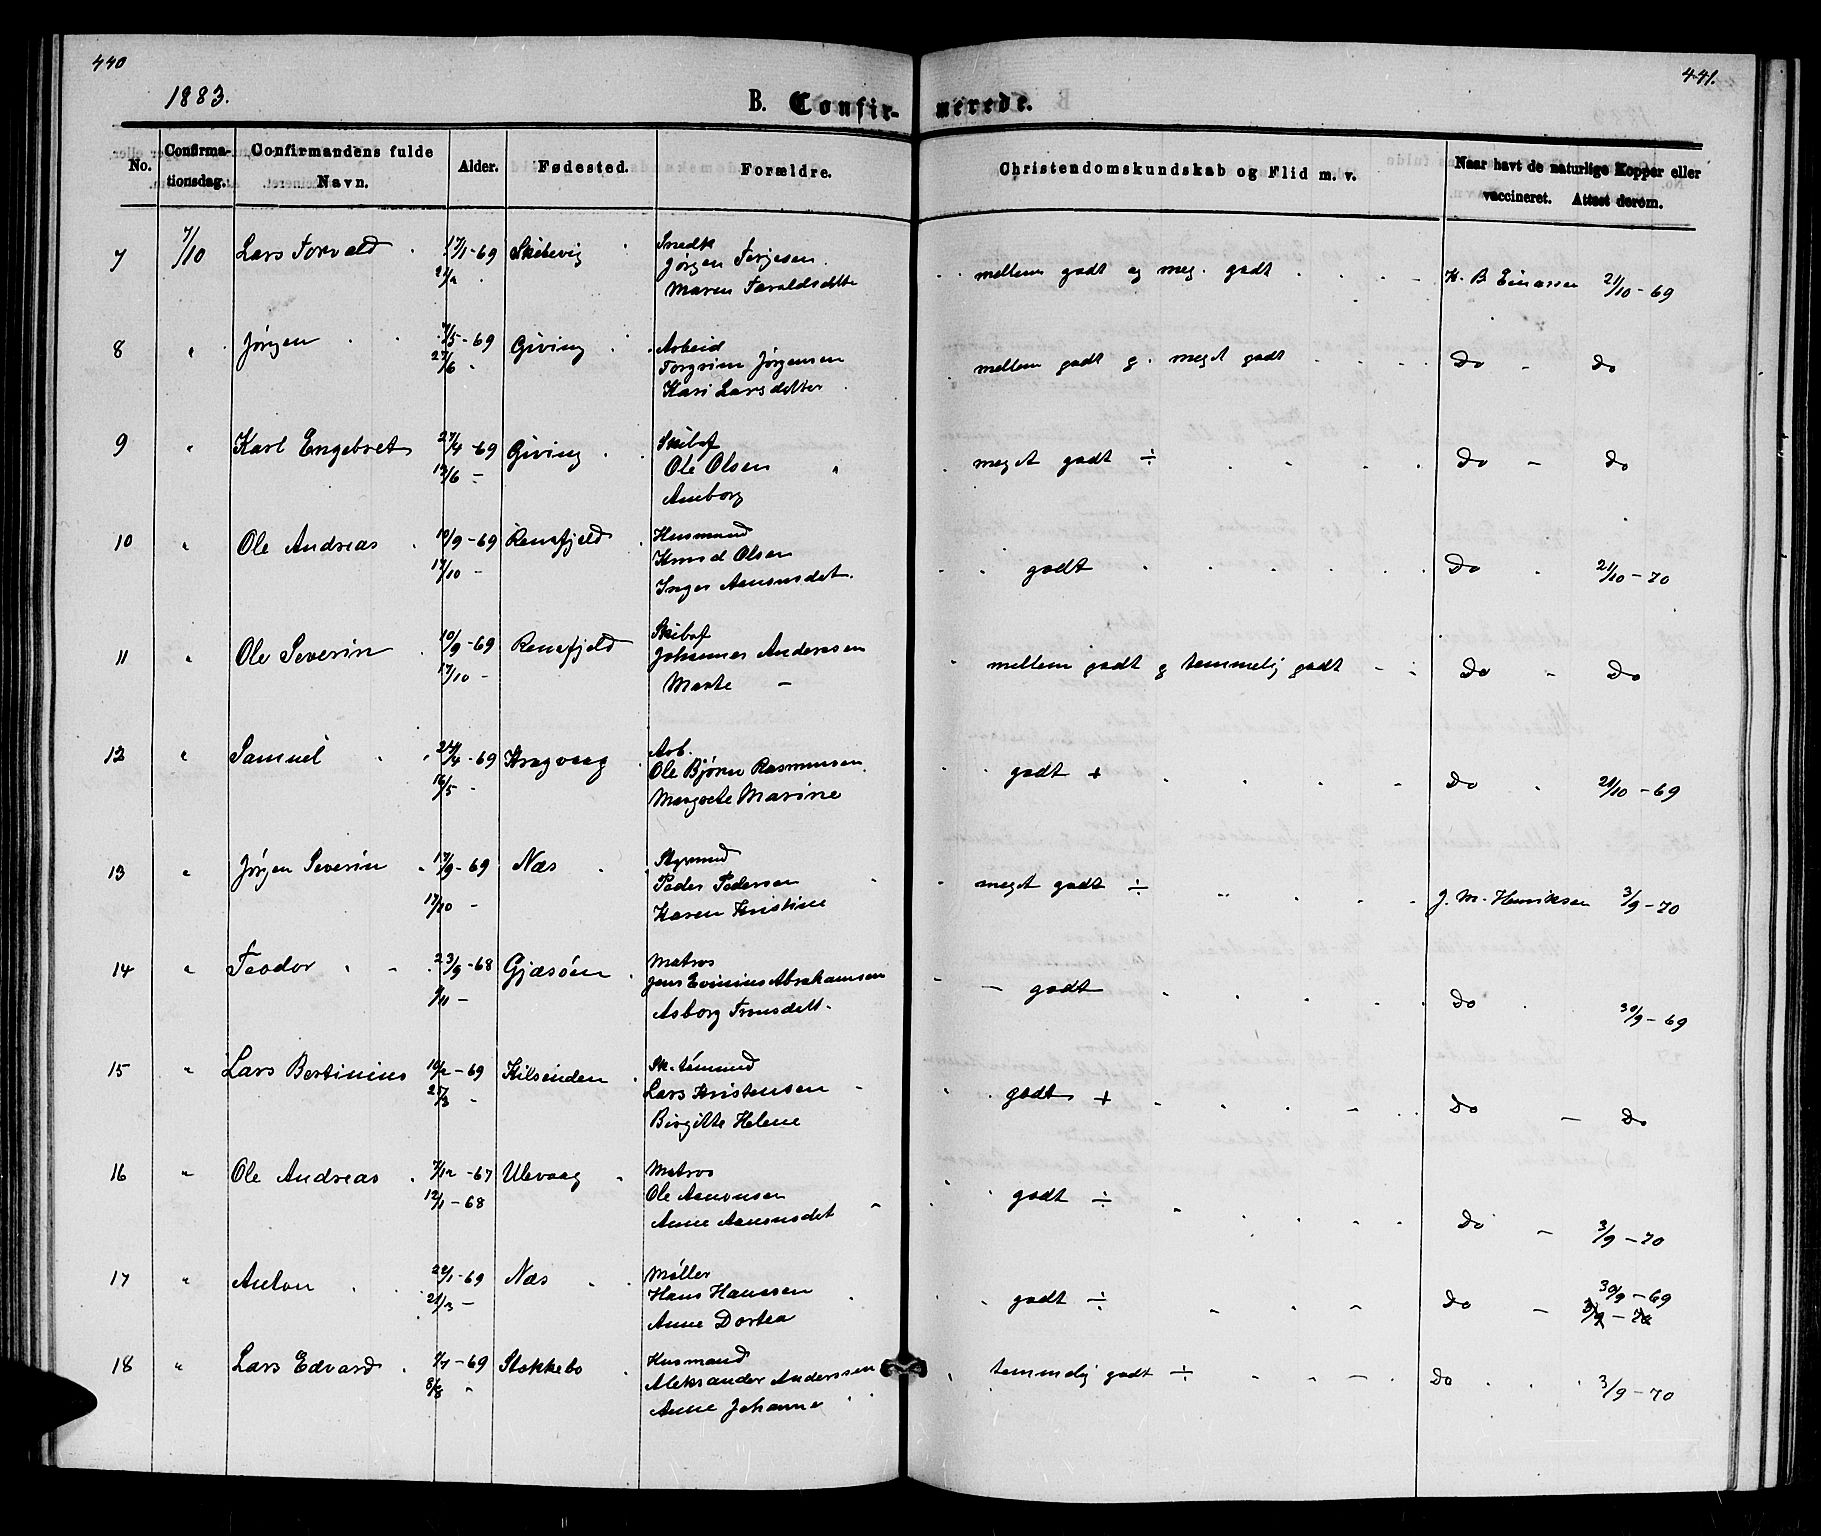 440
441.
1883.
B. Confir-
merede.
No.
Confirma-
tionsdag.
Confirmandens fulde
Navn.
Alder.
Fødested.
Forældre.
Christendomskundskab og Flid m. v.
Naar havt de naturlige Kopper eller
vaccineret. Attest derom.
7 7/10 Lars Torvald 17/1-69 Skibevig Snedk
Jørgen Terjesen
Maren Taraldsdtte
mellem godt og meg. godt K. B. Einarsen 21/10-69
8 " Jørgen 7/5-69 Giving Arbeid
27/6 " Torgrim Jørgensen
Kari Larsdatter
mellem godt g. meget godt Do - Do
9 " Karl Engebret 27/4-69 Giving Skibsf
13/6 - Ole Olsen
Anborg
meget godt ÷ Do - Do
10 " Ole Andreas 10/9-69 Rensfjeld Husmand
17/10 - Knud Olsen
Inger Aanonsdet.
godt Do 21/10-70
11 " Ole Severin 10/9-69 Rensfjeld Skibsf
17/10 - Johannes Andersen
Marte -
mellem godt g temmelig godt Do - Do
12 " Samuel 24/4-69 Kragvaag Arb.
16/5 - Ole Bjørn Rasmussen
Margrete Marine
godt + Do 21/10-69
13 " Jørgen Severin 17/9-69 Næs Styrmd
17/10 - Peder Pedersen
Karen Kristine
meget godt ÷ J. M. Henriksen 3/9-70
14 " Teodor 23/9-68 Gjæsøen Matros
8/11 - Jens Evinius Abrahamsen
Asborg Tronsdett.
godt Do 30/9-69
15 " Lars Bertinius 10/2-69 Kilsenden Sk.tømmd
25/3 " Lars Kristensen
Birgitte Helene
godt + Do - Do
16 " Ole Andreas 7/12-67 Ulevaag Matros
12/1-68 Ole Aanonsen
Anne Aanonsdet
godt ÷ Do - 3/9-70
17 " Anton 22/1-69 Næs Møller
21/3 - Hans Hanssen
Anne Dortea
godt ÷ Do - 30/9-69
3/9-70
18 " Lars Edvard 7/7-69 Stokkebo Husmand
8/8 " Aleksander Anderssen
Anne Johanne
temmelig godt ÷ Do 3/9-70